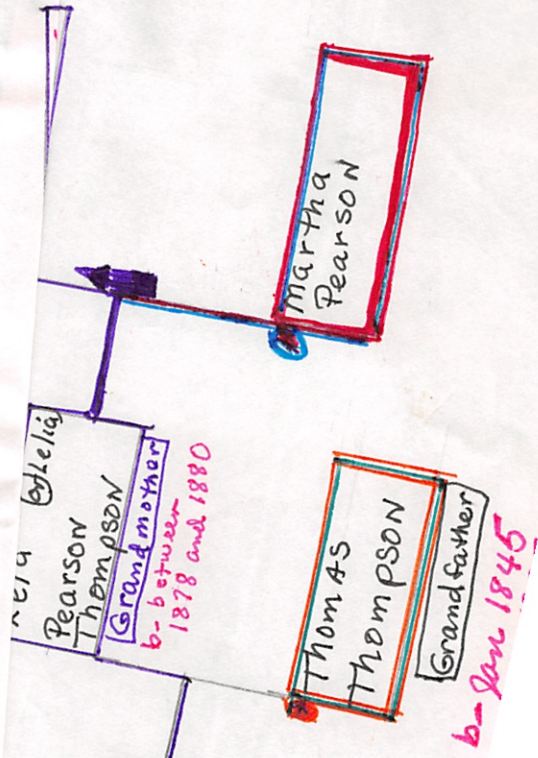 Martha
Pearson
Lelia
Pearson
Thompson
Grandmother
b- between
1878 and 1880
Thomas
Thompson
Grandfather
b- Jan 1845